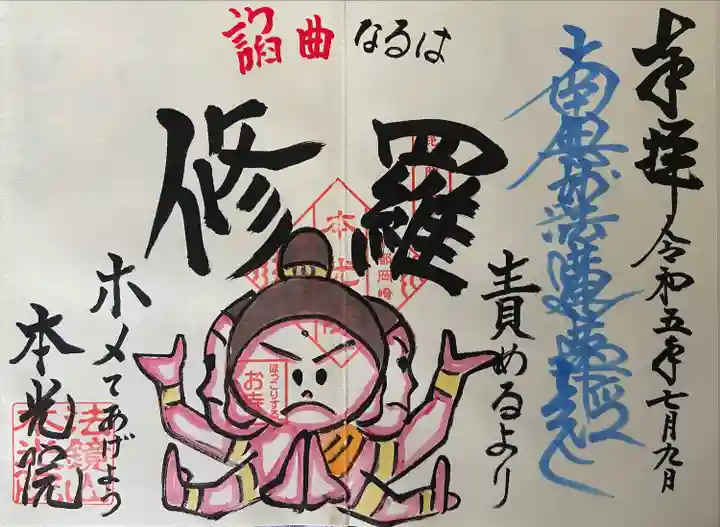 奉拝 令和五年七月九日
南無妙法蓮華経
諂曲なるは
修羅
責めるより
ホメてあげよう
本光院
ほっこりする
お寺
法鏡山